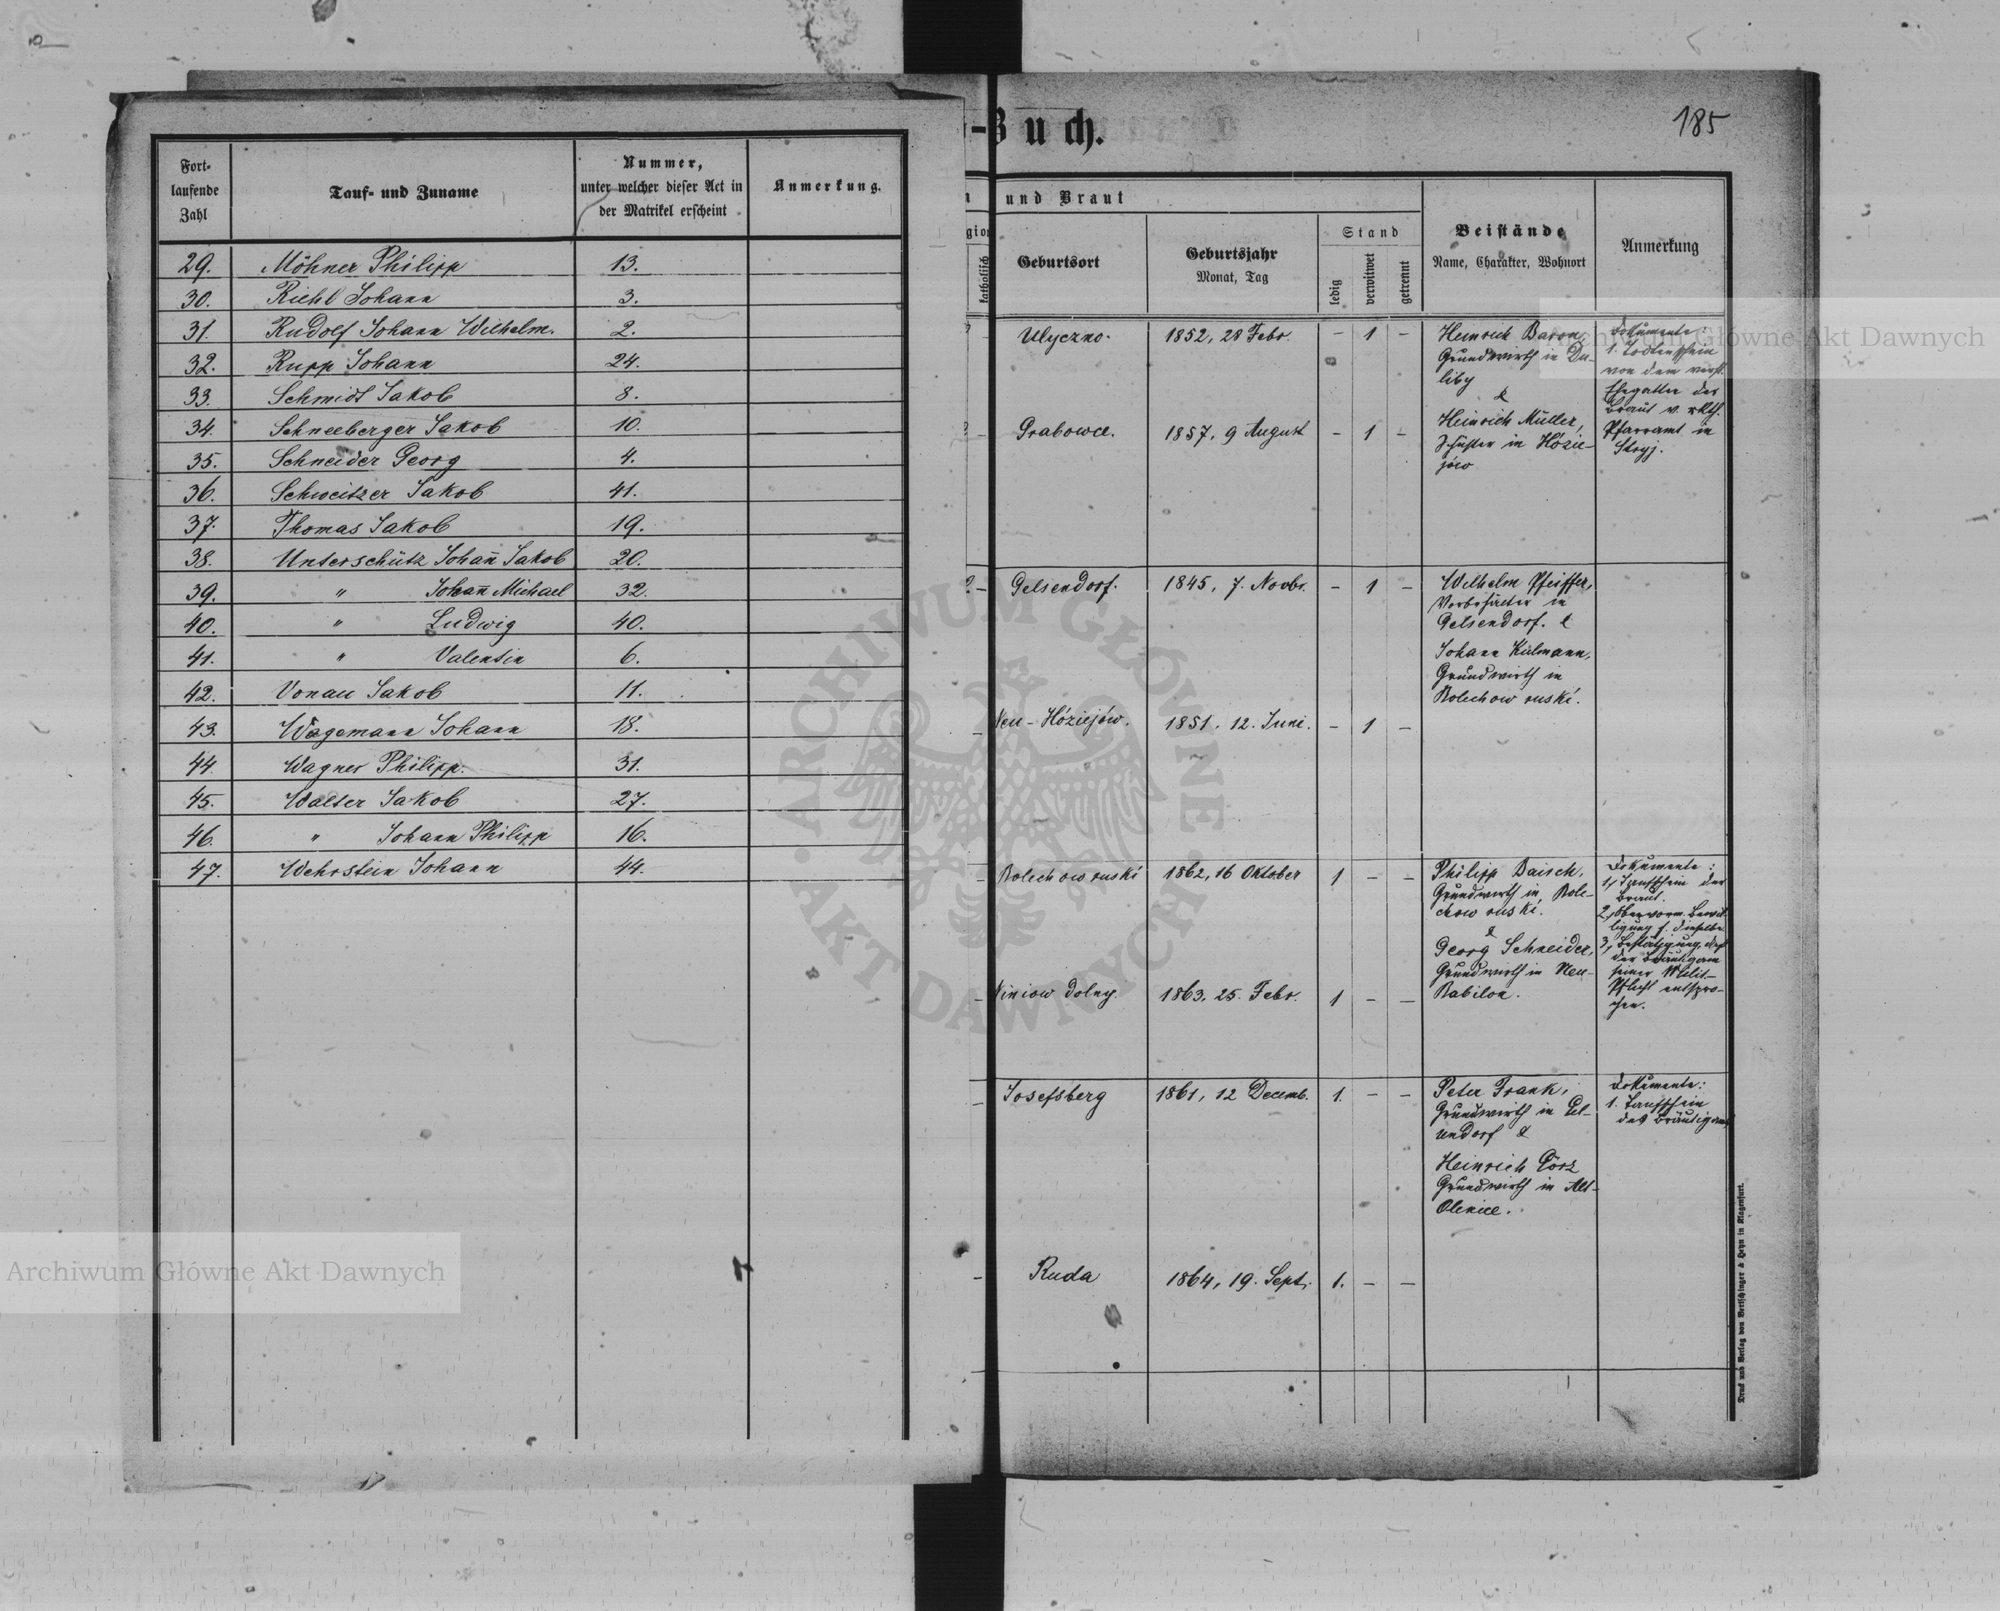 Fort-
laufende
Zahl
Tauf- und Zuname
Nummer,
unter welcher dieser Act in
der Matrikel erscheint
Anmerkung.
29. Möhner Philipp 13.
30. Riehl Johann 3.
31. Rudolf Johann Wilhelm. 2.
32. Rupp Johann 24.
33. Schmidt Jakob 8.
34. Schneeberger Jakob 10.
35. Schneider Georg 4.
36. Schweitzer Jakob 41.
37. Thomas Jakob 19.
38. Unterschütz Johañ Jakob 20.
39. " Johañ Michael 32.
40. " Ludwig 40.
41. " Valentin 6.
42. Vonau Jakob 11.
43. Wagemann Johann 18.
44. Wagner Philipp. 31.
45. Walter Jakob 27.
46. " Johann Philipp 16.
47. Wehrstein Johann 44.
-Buch.
185
und Braut
katholisch
Geburtsort
Geburtsjahr
Monat, Tag
Stand
ledig
verwitwet
getrennt
Beistände
Name, Charakter, Wohnort
Anmerkung
Ulyczno. 1852, 28 Febr. – 1 –
Heinrich Baron,
Grundwirth in Du-
liby
&
Heinrich Müller,
Schuster in Hózie-
jów
Dokumente:
1. Todtenschein
von dem verst.
Ehegatten der
Braut v. rkth.
Pfarramt in
Stryj.
Grabowce. 1857, 9 August – 1 –
Gelsendorf. 1845, 7. Novbr. – 1 –
Wilhelm Pfeiffer,
Vorbesitzer in
Gelsendorf. &
Johann Külmann,
Grundwirth in
Bolechow ruski.
Neu-Hóziejów. 1851. 12. Juni. – 1 –
Bolechow ruski 1862, 16 Oktober 1 – –
Philipp Daisch,
Grundwirth in Bole-
chow ruski.
&
Georg Schneider,
Grundwirth in Neu-
Babilon.
Dokumente:
1, Taufschein der
Braut.
2, Obervorm. Bewil-
ligung f. dieselbe.
3, Bestätigung, daß
der Bräutigam
seiner Milit-
Pflicht entspro-
chen.
Niniow dolny. 1863, 25. Febr. 1 – –
Josefsberg 1861, 12 Decemb. 1. – –
Peter Frank,
Grundwirth in Gel-
sendorf &
Heinrich Görz
Grundwirth in Alt-
Oleksice.
Dokumente:
1. Taufschein
des Bräutigams
Ruda 1864, 19. Sept. 1. – –
Druck und Verlag von Bertschinger & Heyn in Klagenfurt.
Archiwum Główne Akt Dawnych
Archiwum Główne Akt Dawnych
ARCHIWUM GŁÓWNE AKT DAWNYCH